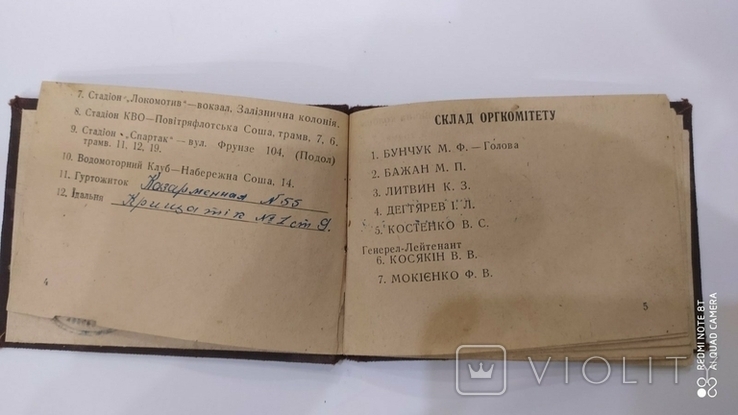 7. Стадіон „Локомотив"—вокзал, Залізнична колонія.
8. Стадіон КВО—Повітряфлотська Соша, трамв. 7, 6.
9. Стадіон „Спартак" — вул. Фрунзе 104, (Подол)
трамв. 11, 12, 19.
10. Водомоторний Клуб—Набережна Соша, 14.
11. Гуртожиток Казарменная №55
12. Їдальня Крищатік №1 ст 9.
4
СКЛАД ОРГКОМІТЕТУ
1. БУНЧУК М. Ф. — Голова
2. БАЖАН М. П.
3. ЛИТВИН К. З.
4. ДЕГТЯРЕВ І. Л.
5. КОСТЕНКО В. С.
Генерел-Лейтенант
6. КОСЯКІН В. В.
7. МОКІЄНКО Ф. В.
5
VIOLIT
REDMI NOTE 8T
AI QUAD CAMERA